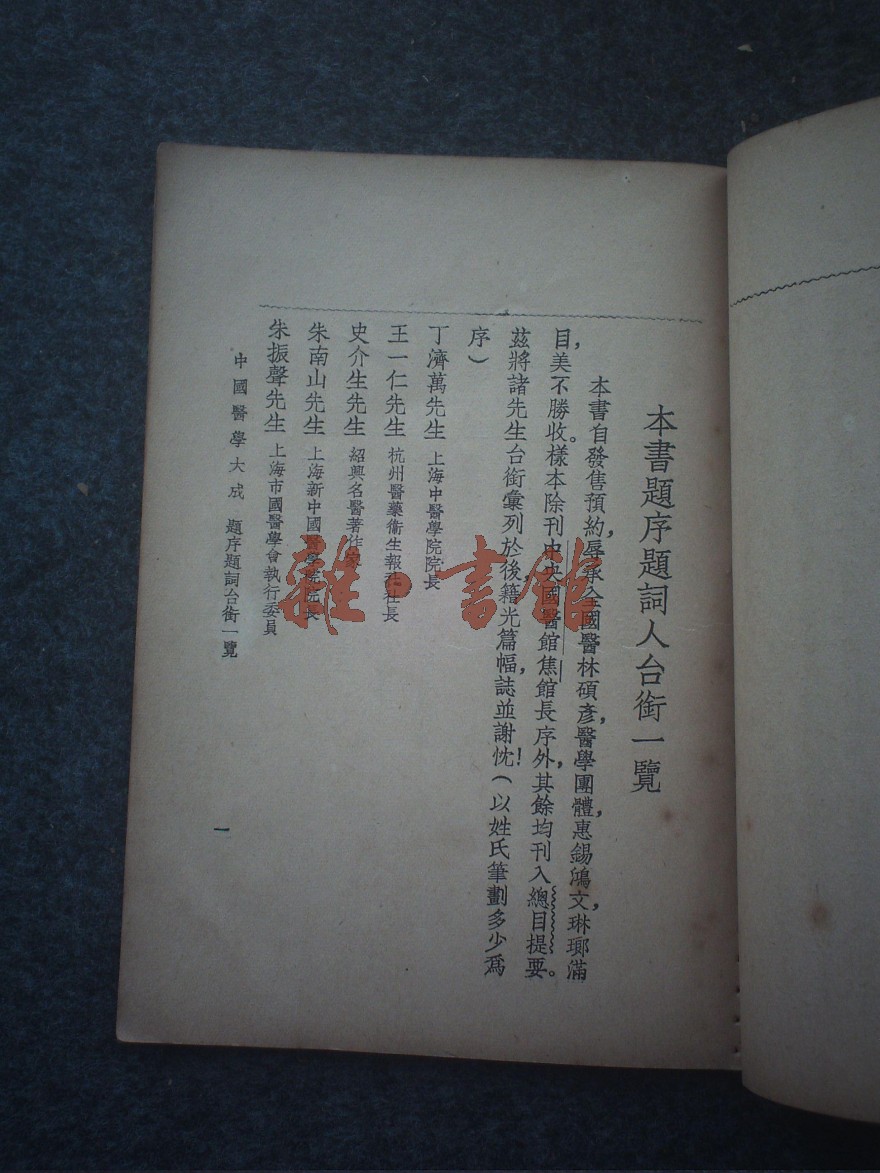 本書題序題詞人台銜一覽
本書自發售預約，辱承全國醫林碩彥，醫學團體，惠錫鴻文，琳瑯滿
目，美不勝收。樣本除刊中央國醫館焦館長序外，其餘均刊入總目提要。
茲將諸先生台銜彙列於後，籍光篇幅，誌並謝忱！（以姓氏筆劃多少爲
序）
丁濟萬先生 上海中醫學院院長
王一仁先生 杭州醫藥衞生報社社長
史介生先生 紹興名醫著作家
朱南山先生 上海新中國醫學院院長
朱振聲先生 上海市國醫學會執行委員
中國醫學大成 題序題詞台銜一覽
一
雜·書館